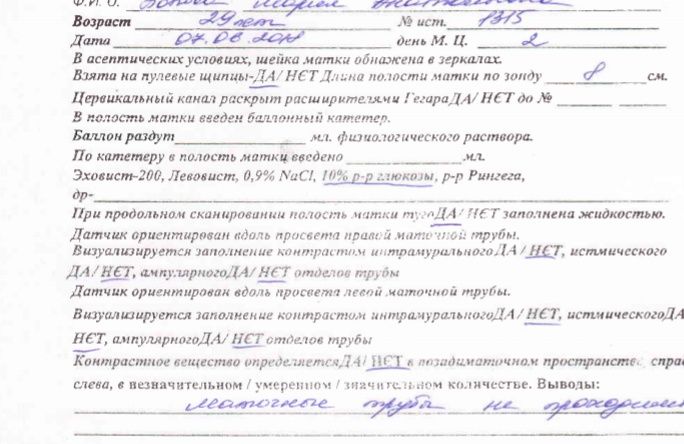 Ф.И. О.
Возраст 29 лет № ист. 1315
Дата 07.08.2018 день М. Ц. 2
В асептических условиях, шейка матки обнажена в зеркалах.
Взята на пулевые щипцы-ДА/ НЄТ Длина полости матки по зонду 8 см.
Цервикальный канал раскрыт расширителями ГегараДА/ НЄТ до № ______ ______
В полость матки введен баллонный катетер.
Баллон раздут______________ мл. физиологического раствора.
По катетеру в полость матки введено ______________мл.
Эховист-200, Левовист, 0,9% NaCl, 10% р-р глюкозы, р-р Рингега,
др-______________
При продольном сканировании полость матки тугоДА/ НЄТ заполнена жидкостью.
Датчик ориентирован вдоль просвета правой маточной трубы.
Визуализируется заполнение контрастом интрамуральногоДА / НЄТ, истмического
ДА/ НЄТ, ампулярногоДА/ НЄТ отделов трубы
Датчик ориентирован вдоль просвета левой маточной трубы.
Визуализируется заполнение контрастом интрамуральногоДА/ НЄТ, истмическогоДА
НЄТ, ампулярногоДА/ НЄТ отделов трубы
Контрастное вещество определяетсяДА/ НЄТ в позадиматочном пространстве, спра
слева, в незначительном / умеренном / значительном количестве. Выводы:
маточные трубы не проходим